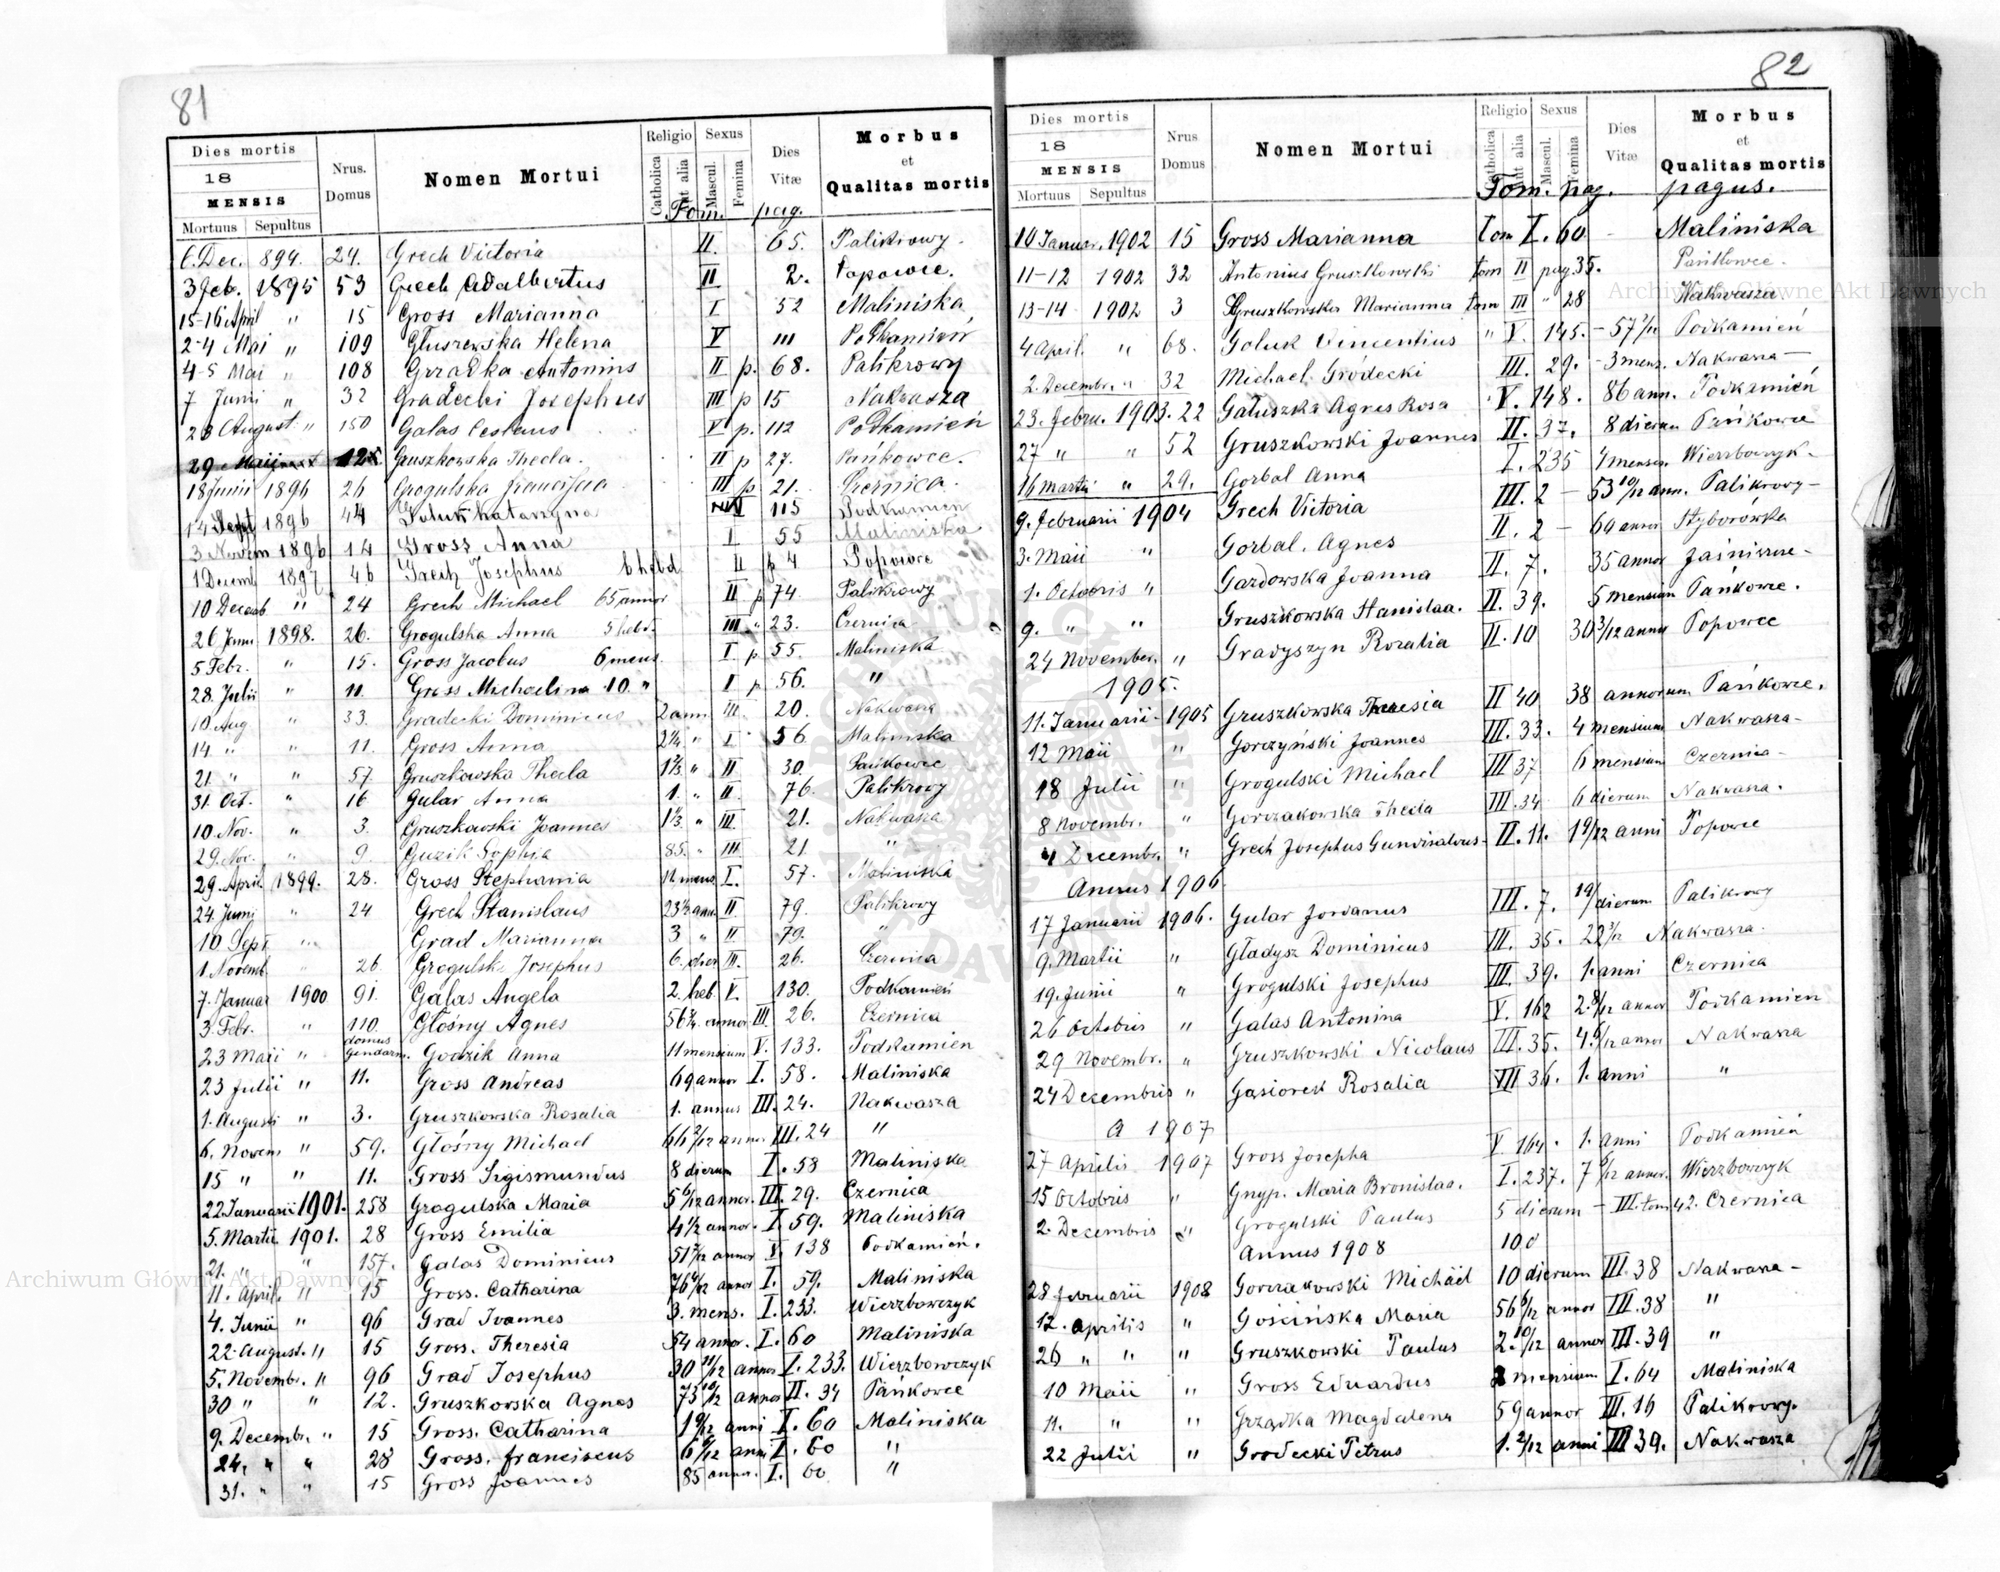 81
Dies mortis
18
MENSIS
Mortuus Sepultus
Nrus. Domus
Nomen Mortui
Religio
Catholica
Aut alia
Sexus
Mascul.
Femina
Dies Vitæ
Morbus
et
Qualitas mortis
Tom. pag.
6. Dec. 894. 24. Grech Victoria II. 65. Palikrowy.
3 Feb. 1895 53 Grech Adalbertus II 2. Popowce.
15-16 April " 15 Gross Marianna I 52 Maliniska
2-4 Mai " 109 Głuszewska Helena V 111 Podkamień
4-5 Mai " 108 Grządka Antonius II p. 68. Palikrowy
7 Junii " 32 Gradecki Josephus III p 15 Nakwasza
28 August. " 150 Galas Ceslaus V p. 112 Podkamień
29 Gruszkowska Thecla. II p 27. Pańkowce.
18 Junii 1896 26 Grogulska Francisca III p 21. Czernica.
14 Sept 1896 44 Goluk Katarzyna 115 Podkamien
3 Novem 1896 14 Gross Anna I 55 Maliniska
1 Decemb 1897 46 Grech Josephus 6 hebd II p 4 Popowce
10 Decemb " 24 Grech Michael 65 annor II p 74. Palikrowy
26 Janu 1898. 26. Grogulska Anna 5 hebd. III " 23. Czernica
5 Febr. " 15. Gross Jacobus 6 mens. I p 55. Maliniska
28. Julii " 11. Gross Michaelina 10. " I p 56. "
10 Aug " 33. Gradecki Dominicus 2 ann III. 20. Nakwasza
14. " " 11. Gross Anna 2¼ " I 56. Maliniska
21 " " 57 Gruszkowska Thecla " II 30. Pańkowce
31. Oct. " 16 Gular Anna 1. " II. 76. Palikrowy
10. Nov. " 3. Gruszkowski Joannes " III. 21. Nakwasza
29. Nov. " 9. Guzik Sophia 85. " III 21 "
29. April 1899. 28. Gross Stephania 11 mens. I. 57. Maliniska
24. Junij " 24 Grech Stanislaus 23½ ann II 79. Palikrowy
10. Sept " Grad Marianna 3 " II 79. "
1. Novemb " 26 Grogulsk. Josephus 6. dier III. 26. Czernica
7. Januar 1900 91. Galas Angela 2. heb. V. 130. Podkamień
3. Febr. " 110. Głośny Agnes annor III. 26. Czernica
23 Maii " domus gendarm. Godzik Anna 11 mensium V. 133. Podkamien
23 Julii " 11. Gross Andreas 69 annor I. 58. Maliniska
1. Augusti " 3. Gruszkowska Rosalia 1. annus III. 24. Nakwasza
6. Novem " 59. Głośny Michael 2/12 annor III. 24 "
15 " " 11. Gross Sigismundus 8 dierum I. 58 Maliniska
22 Januarii 1901. 258 Grogulska Maria 5 6/12 annor. III. 29. Czernica
5. Martii 1901. 28 Gross Emilia 4 1/2 annor. I 59. Maliniska
21. " " 157. Galas Dominicus annor V 138 Podkamień.
11. April. " 15 Gross. Catharina annor I. 59. Maliniska
4. Junii " 96 Grad Joannes 3. mens. I. 233. Wierzbowczyk
22. August. " 15 Gross. Theresia 54 annor. I. 60 Maliniska
5. Novembr. " 96 Grad Josephus 30 11/12 annor I. 233. Wierzbowczyk
30 " " 12. Gruszkowska Agnes 73 10/12 annor II. 34 Pańkowce
9. Decembr. " 15 Gross. Catharina anni I. 60 Maliniska
24. " " 28 Gross. Franciscus anni I. 60 "
31. " " 15 Gross Joannes 85 annor. I. 60 "
82
Dies mortis
18
MENSIS
Mortuus Sepultus
Nrus Domus
Nomen Mortui
Religio
Catholica
Aut alia
Sexus
Mascul.
Femina
Dies Vitæ
Morbus
et
Qualitas mortis
Tom. pag. pagus.
10 Januar. 1902 15 Gross Marianna Tom I. 60 - Maliniska
11-12 1902 32 Antonius Gruszkowski tom II pag 35. Pańkowce.
13-14 1902 3 Gruszkowska Marianna tom III " 28 Nakwasza
4 April. " 68. Goluk Vincentius " V. 145. - 57 Podkamień
2. Decembr. " 32 Michael Gródecki III. 29. - 3 mens. Nakwasza -
23. Febru. 1903. 22 Gałuszka Agnes Rosa V. 148. 86 ann. Podkamień
27 " " 52 Gruszkowski Joannes II. 37. 8 dierum Pańkowce
16 Martii " 29. Gorbal Anna I. 235 4 mensiu Wierzbowczyk.
9. Februarii 1904 Grech Victoria III. 2 - 53 10/12 ann. Palikrowy -
3. Maii " Gorbal. Agnes II. 2 - 60 annor Styborówka
1. Octobris " Gazdowska Joanna II. 7. 35 annor Jaśniszcze -
9. " " Gruszkowska Stanislaa. II. 39. 5 mensium Pańkowce.
24 November. " Gradyszyn Rozalia II. 10 30 3/12 annor Popowce
1905.
11. Januarii - 1905 Gruszkowska Theresia II 40 38 annorum Pańkowce.
12 Maii " Gorczyński Joannes III. 33. 4 mensium Nakwasza -
18 Julii " Grogulski Michael III 37 6 mensium Czernica -
8 Novembr. " Gorczakowska Thecla III. 34 6 dierum Nakwasza.
4 Decembr. " Grech Josephus Gundisalvus - II. 11. anni Popowce
Annus 1906
17 Januarii 1906. Gular Jordanus III. 7. dierum Palikrowy
9. Martii " Gładysz Dominicus III. 35. 22 3/12 Nakwasza.
19. Junii " Grogulski Josephus III. 39. 1. anni Czernica
26 Octobris " Galas Antonina V. 162 annor Podkamien
29 Novembr. " Gruszkowski Nicolaus III. 35. annor Nakwasza
24 Decembris " Gąsiorek Rosalia III 36. 1. anni "
A 1907
27 Aprilis 1907 Gross Josepha V 164. 1. anni Podkamień
15 Octobris " Gnyp. Maria Bronislaa. I. 237. annor. Wierzbowczyk
2. Decembris " Grogulski Paulus 5 dierum - III. tom 42. Czernica
Annus 1908 10 d
28 Februarii 1908 Gorczakowski Michäel 10 dierum III. 38 Nakwasza -
12. Aprilis " Gościńska Maria annor III. 38 "
26 " " " Gruszkowski Paulus 2. 10/12 annor III. 39 "
10 Maii " Gross Eduardus mensium I. 64 Maliniska
11. " " Grządka Magdalena 59 annor III. 16 Palikrowy.
22 Julii " Grodecki Petrus 1. 2/12 anni III 39. Nakwasza
Archiwum Główne Akt Dawnych
Archiwum Główne Akt Dawnych